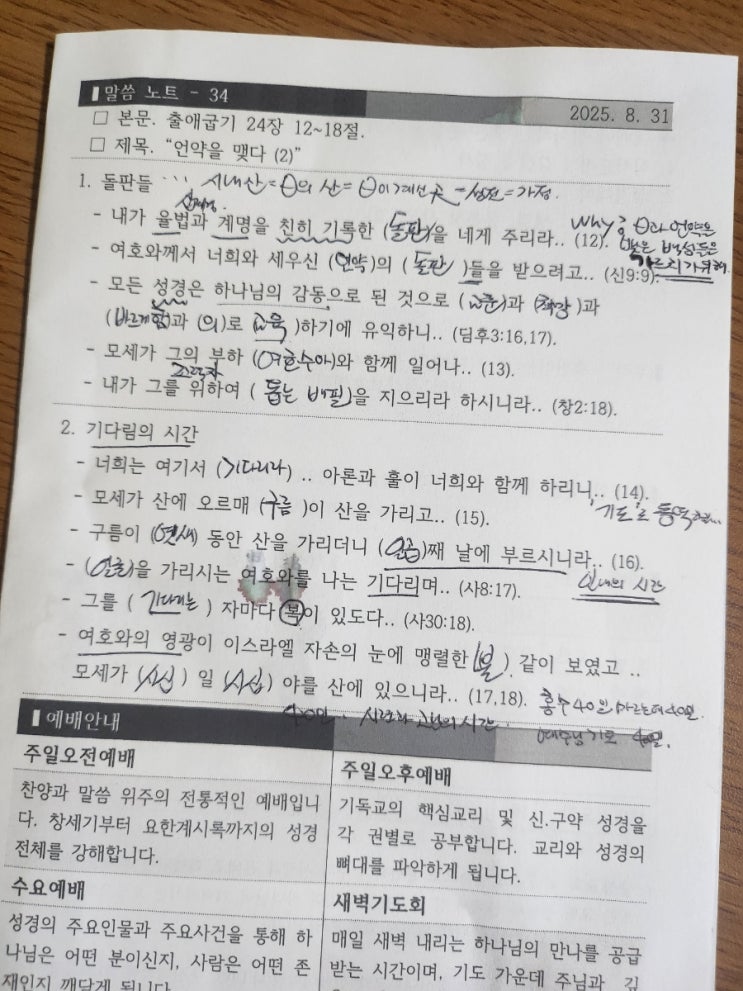 ▌말씀 노트 - 34 2025. 8. 31
□ 본문. 출애굽기 24장 12~18절.
□ 제목. "언약을 맺다 (2)"
1. 돌판들 ··· 시내산 = θ의 산 = θ이 계신 곳 = 성전 = 가정.
- 내가 율법과 계명을 친히 기록한 (돌판)을 네게 주리라.. (12).
why? θ과 언약을 맺은 백성들을 가르치기 위해
- 여호와께서 너희와 세우신 (언약)의 (돌판)들을 받으려고.. (신9:9).
- 모든 성경은 하나님의 감동으로 된 것으로 (교훈)과 (책망)과
(바르게함)과 (의)로 (교육)하기에 유익하니.. (딤후3:16,17).
- 모세가 그의 부하 (여호수아)와 함께 일어나.. (13).
조력자
- 내가 그를 위하여 (돕는 배필)을 지으리라 하시니라.. (창2:18).
2. 기다림의 시간
- 너희는 여기서 (기다리라) .. 아론과 훌이 너희와 함께 하리니.. (14).
- 모세가 산에 오르매 (구름)이 산을 가리고.. (15). "기도"로
- 구름이 (엿새) 동안 산을 가리더니 (일곱)째 날에 부르시니라.. (16).
- (얼굴)을 가리시는 여호와를 나는 기다리며.. (사8:17). 인내의 시간
- 그를 (기다리는) 자마다 복이 있도다.. (사30:18).
- 여호와의 영광이 이스라엘 자손의 눈에 맹렬한 (불) 같이 보였고 ..
모세가 (사십) 일 (사십) 야를 산에 있으니라.. (17,18). 홍수 40일
40일. 시련과 고난의 시간. 예수님 기도 40일.
▌예배안내
주일오전예배
찬양과 말씀 위주의 전통적인 예배입니
다. 창세기부터 요한계시록까지의 성경
전체를 강해합니다.
주일오후예배
기독교의 핵심교리 및 신.구약 성경을
각 권별로 공부합니다. 교리와 성경의
뼈대를 파악하게 됩니다.
수요예배
성경의 주요인물과 주요사건을 통해 하
나님은 어떤 분이신지, 사람은 어떤 존
재인지 깨닫게 됩니다.
새벽기도회
매일 새벽 내리는 하나님의 만나를 공급
받는 시간이며, 기도 가운데 주님과 깊